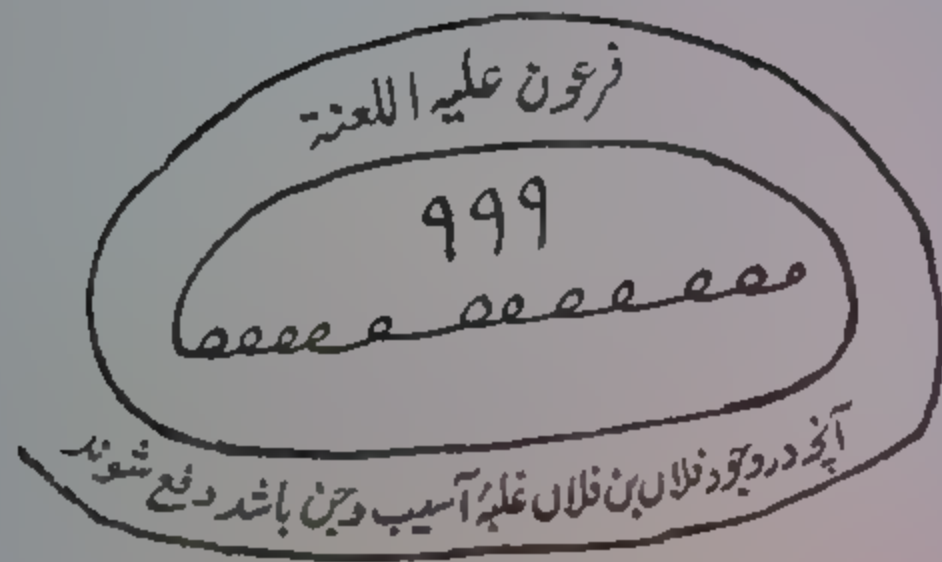 فرعون علیہ اللعنۃ
۹۹۹
آنچہ در وجود فلاں بن فلاں غلبۂ آسیب و جن باشد دفع شوند